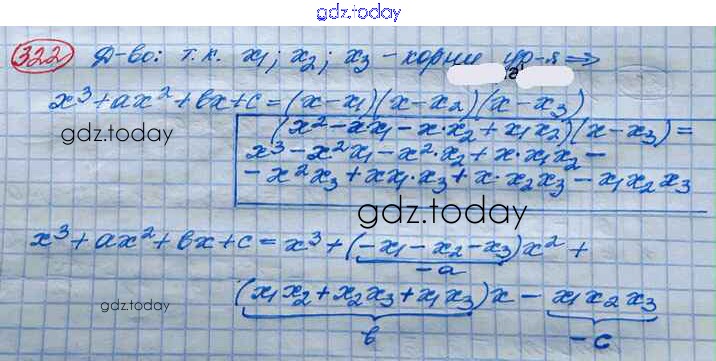 gdz.today
322 Д-во: т.к. x₁; x₂; x₃ - корни ур-я ⇒
x³+ax²+bx+c=(x-x₁)(x-x₂)(x-x₃)
gdz.today
(x²-xx₁-x·x₂+x₁x₂)(x-x₃)=
x³-x²x₁-x²·x₂+x·x₁x₂-
-x²x₃+xx₁·x₃+x·x₂x₃-x₁x₂x₃
gdz.today
x³+ax²+bx+c=x³+(-x₁-x₂-x₃)x²+
-a
gdz.today
(x₁x₂+x₂x₃+x₁x₃)x-x₁x₂x₃
b -c